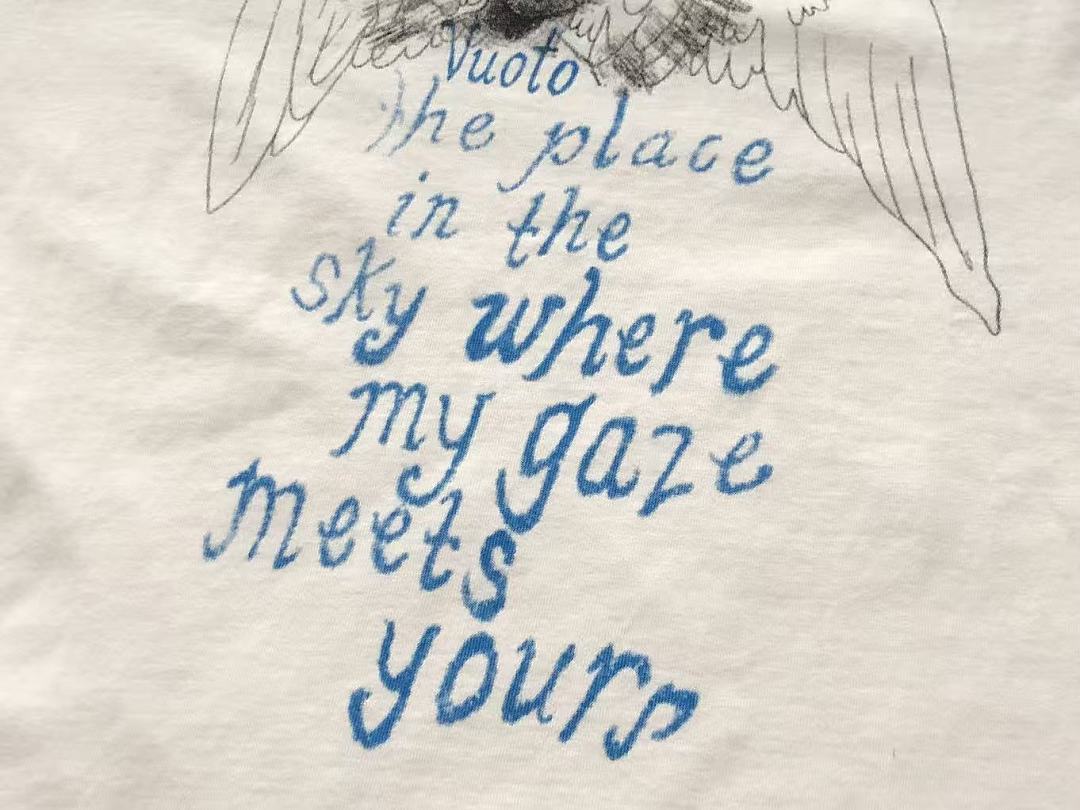 Vuoto
the place
in the
sky where
my gaze
meets
yours